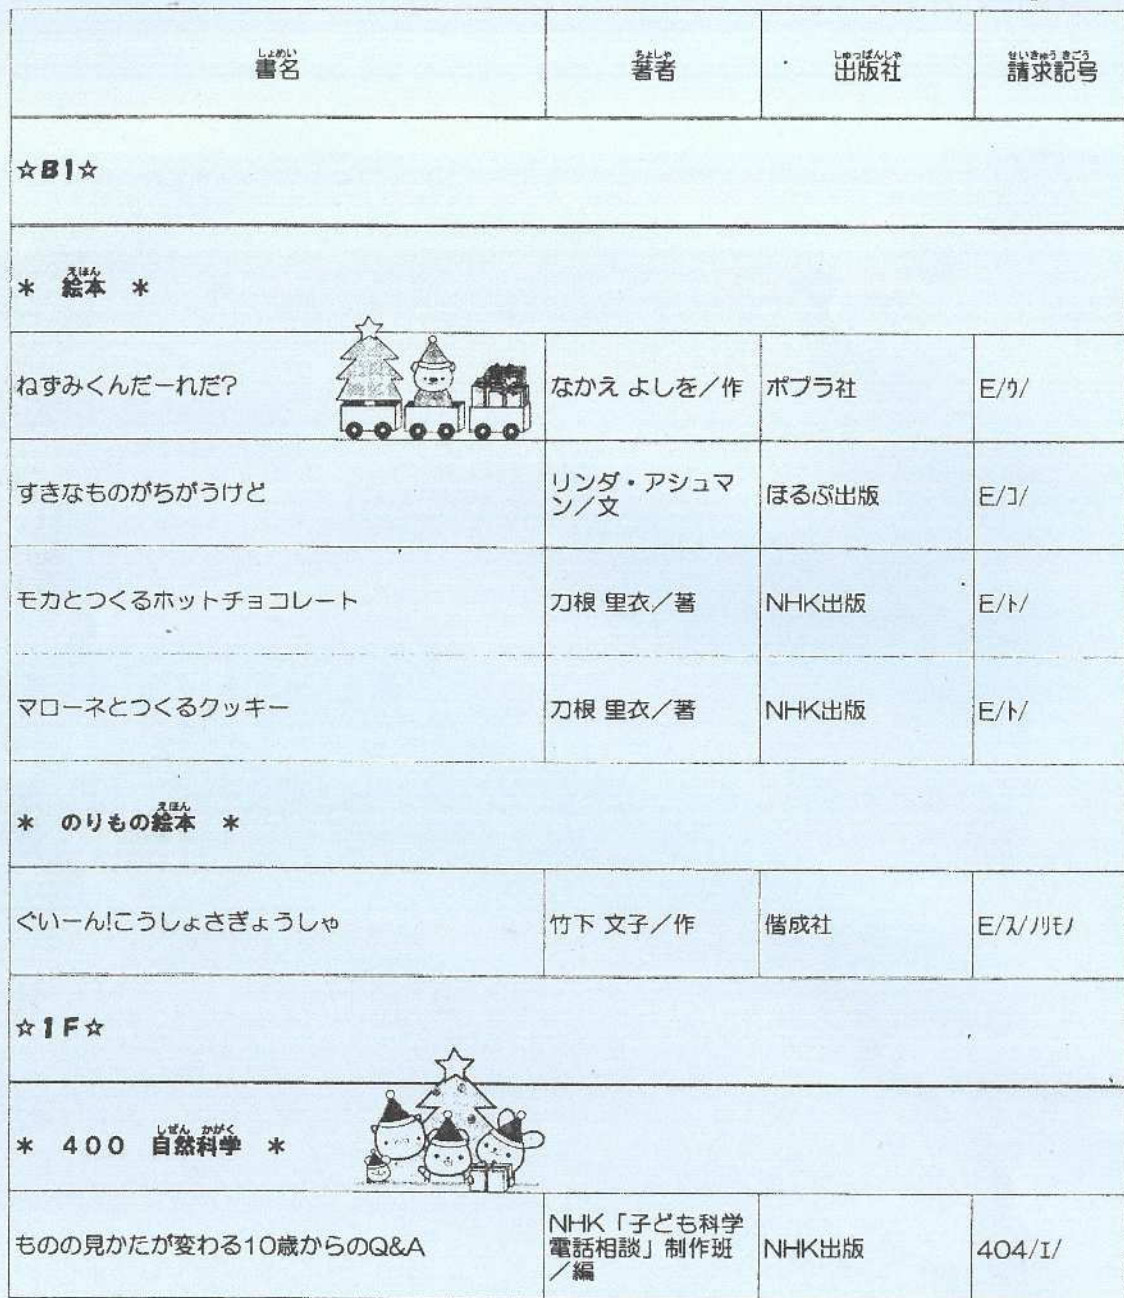 しょめい ちょしゃ しゅっぱんしゃ せいきゅう きごう
書名 著者 出版社 請求記号
☆B1☆
えほん
* 絵本 *
ねずみくんだーれだ? なかえ よしを／作 ポプラ社 E/ウ/
すきなものがちがうけど リンダ・アシュマ
ン／文 ほるぷ出版 E/コ/
モカとつくるホットチョコレート 刀根 里衣／著 NHK出版 E/ト/
マローネとつくるクッキー 刀根 里衣／著 NHK出版 E/ト/
えほん
* のりもの絵本 *
ぐいーん!こうしょさぎょうしゃ 竹下 文子／作 偕成社 E/ス/ノリモノ
☆1F☆
しぜん かがく
* 400 自然科学 *
ものの見かたが変わる10歳からのQ&A NHK「子ども科学
電話相談」制作班
／編 NHK出版 404/I/